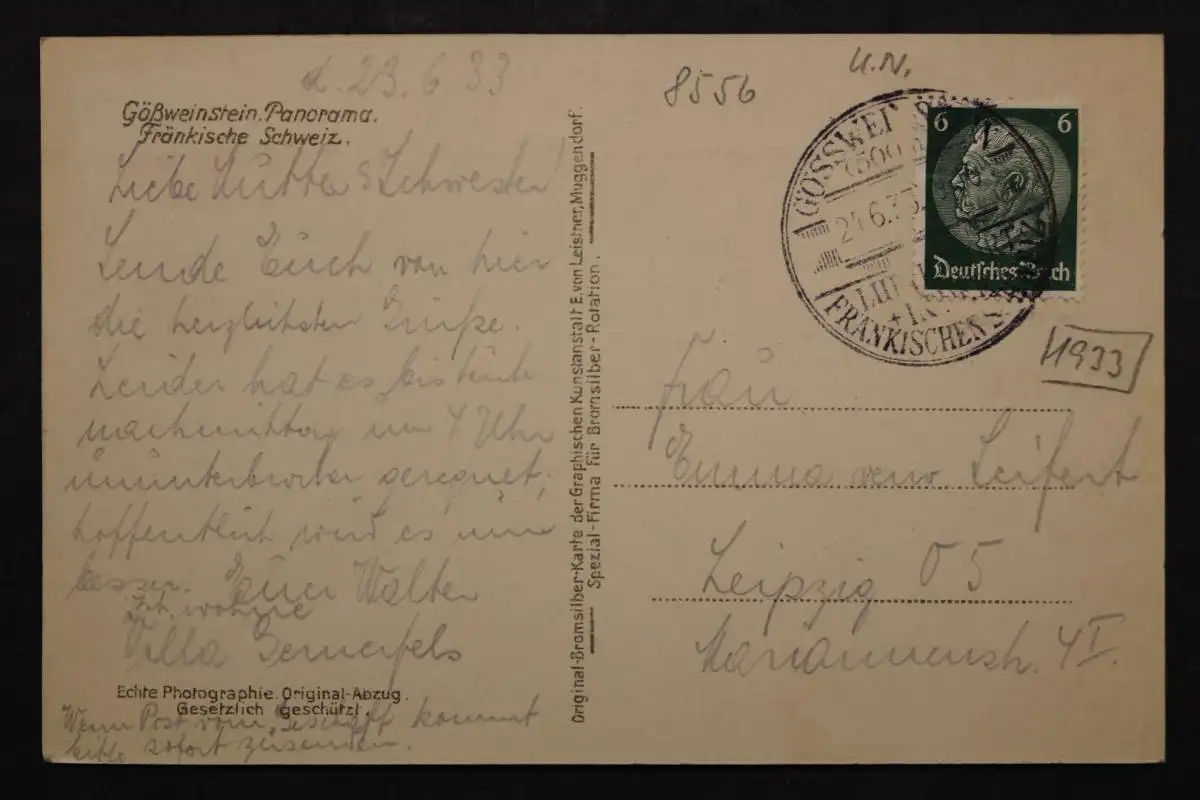 d. 23.6 33
Gößweinstein. Panorama.
Fränkische Schweiz.
Liebe Mutter & Schwester!
Sende Euch von hier
die herzlichsten Grüße.
Leider hat es bis heute
nachmittag um 4 Uhr
ununterbrochen geregnet,
hoffentlich wird es nun
besser. Euer Walter
wohne
Villa
Echte Photographie. Original-Abzug.
Gesetzlich geschützt.
Wenn Post vom Geschäft kommt
bitte sofort zusenden.
Original-Bromsilber-Karte der Graphischen Kunstanstalt E. von Leistner, Muggendorf.
Spezial-Firma für Bromsilber-Rotation.
8556
U.N.
GÖSSWEINSTEIN
24.6.33
FRÄNKISCHEN
6 6
Deutsches Reich
1933
Frau
Emma verw. Leifert
Leipzig O5
Mariannenstr. 4 I.